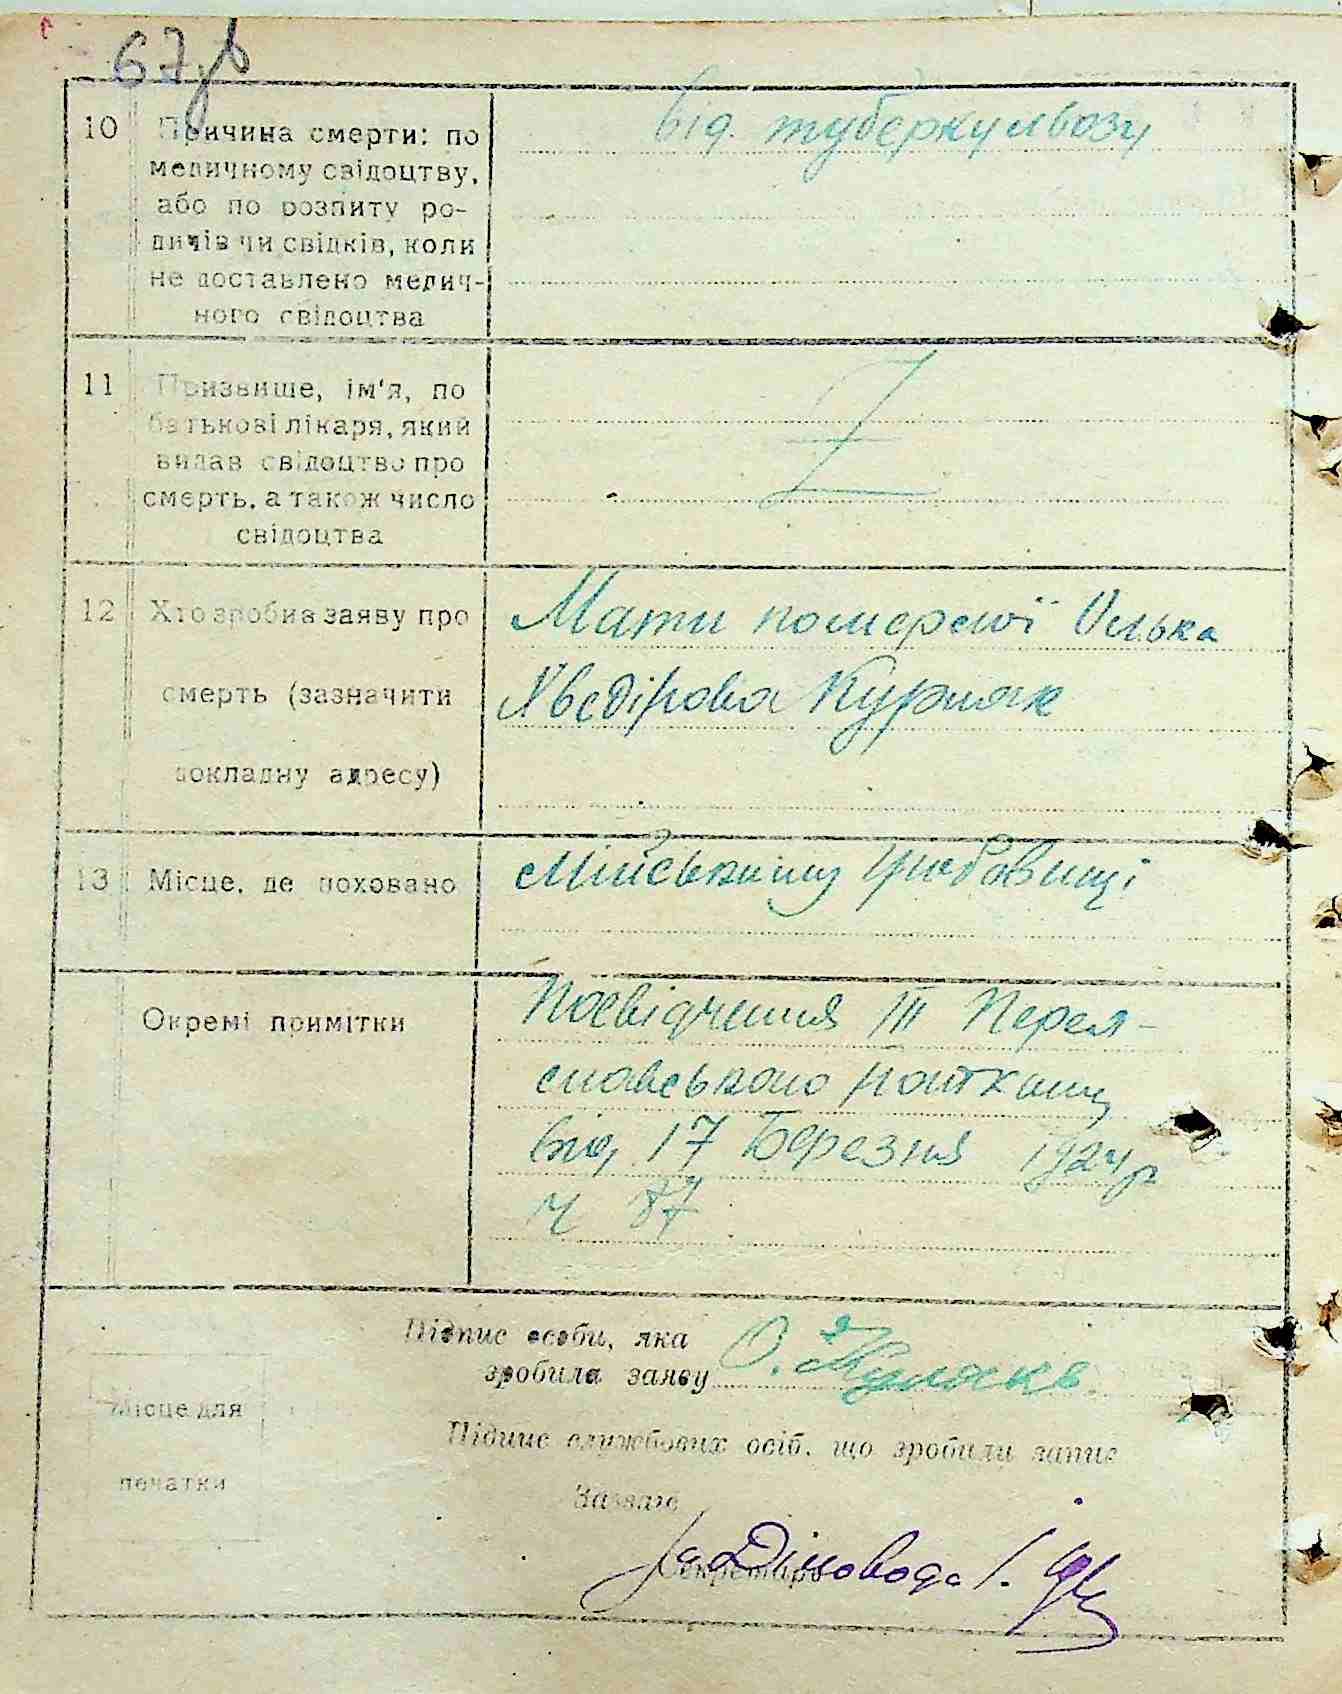 67
10
Причина смерти: по
медичному свідоцтву,
або по розпиту ро-
дичів чи свідків, коли
не доставлено медич-
ного свідоцтва
від туберкульозу
11
Призвище, ім'я, по
батькові лікаря, який
видав свідоцтво про
смерть, а також число
свідоцтва
Z
12
Хто зробив заяву про
смерть (зазначити
докладну адресу)
Мати помершої Олька
Хведірова
13
Місце, де поховано
Міському кладовищі
Окремі примітки
Посвідчення III Перея-
славського
від 17 Березня 1924 р
Ч 87
Підпис особи, яка
зробила заяву
О.
Місце для
печатки
Підпис службових осіб, що зробили запис
Завзагс
Секретарь
За Діловода